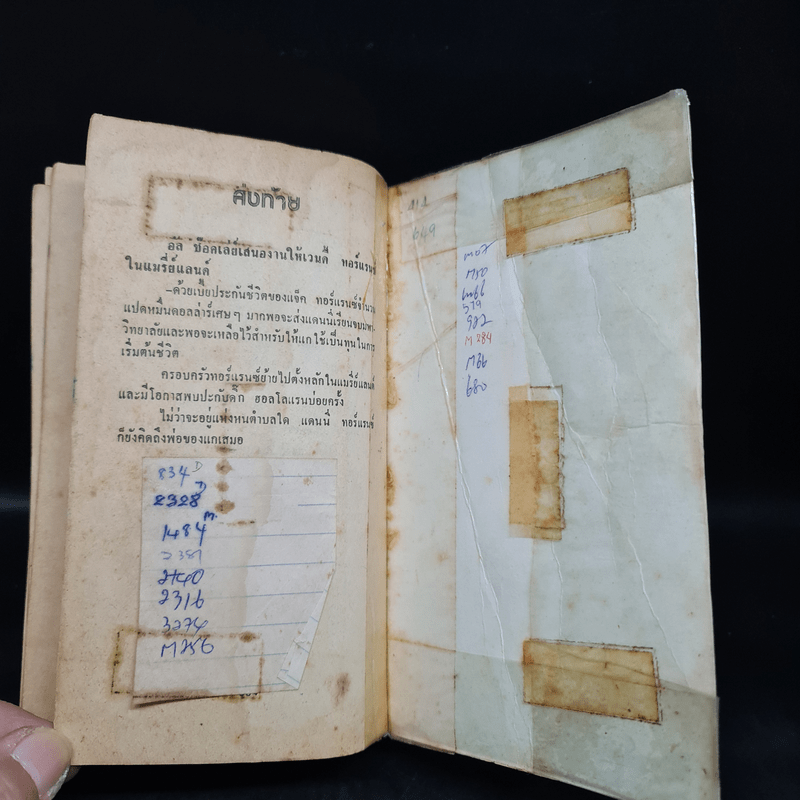 ส่งท้าย
อัล ช็อคเลย์เสนองานให้เวนดี้ ทอร์แรนซ์
ในแมรี่ย์แลนด์
–ด้วยเบี้ยประกันชีวิตของแจ็ค ทอร์แรนซ์จำนวน
แปดหมื่นดอลล่าร์เศษๆ มากพอจะส่งแดนนี่เรียนจบมหา-
วิทยาลัยและพอจะเหลือไว้สำหรับให้แกใช้เป็นทุนในการ
เริ่มต้นชีวิต
ครอบครัวทอร์แรนซ์ย้ายไปตั้งหลักในแมรี่ย์แลนด์
และมีโอกาสพบปะกับดิ๊ก ฮอลโลแรนบ่อยครั้ง
ไม่ว่าจะอยู่แห่งหนตำบลใด แดนนี่ ทอร์แรนซ์
ก็ยังคิดถึงพ่อของแกเสมอ
834 D
2328 D
1484 M.
2140
2316
3274
M256
649
579
922
M 284
M66
680